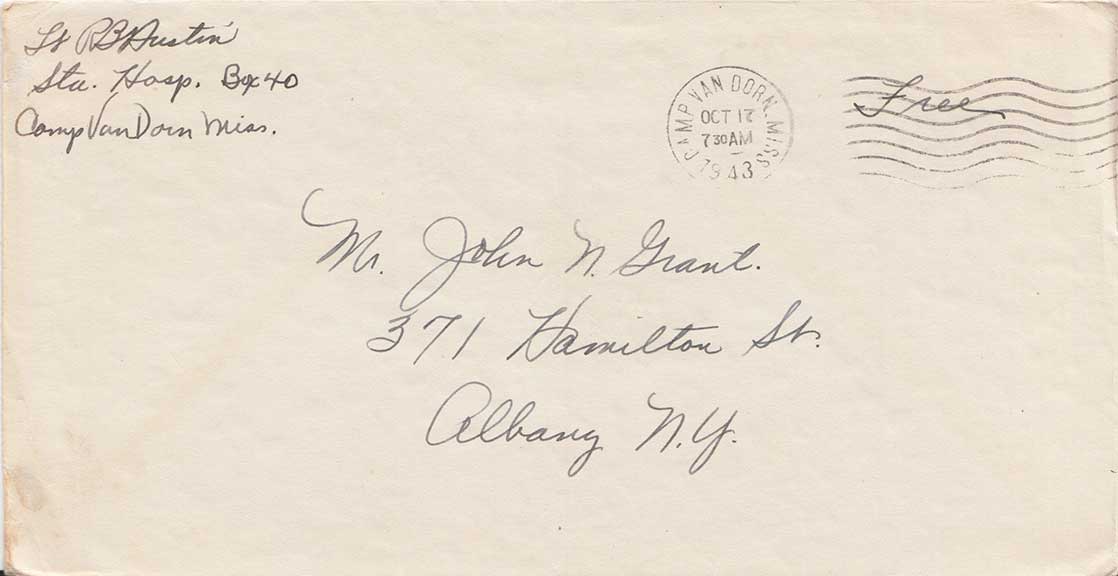 Lt RB Austin
Sta. Hosp. Box 40
Camp Van Dorn Miss.
CAMP VAN DORN, MISS
OCT 17
7 30 AM
1943
Free
Mr. John N. Grant.
371 Hamilton St.
Albany N.Y.